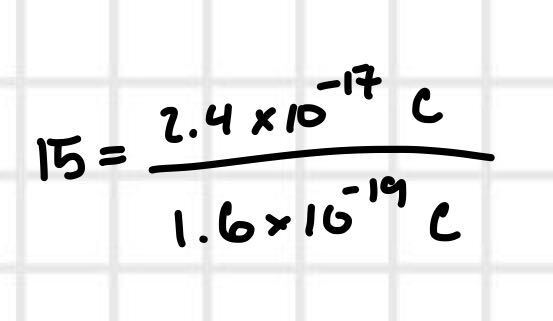 15 = 2.4 × 10⁻¹⁷ C
1.6 × 10⁻¹⁹ C